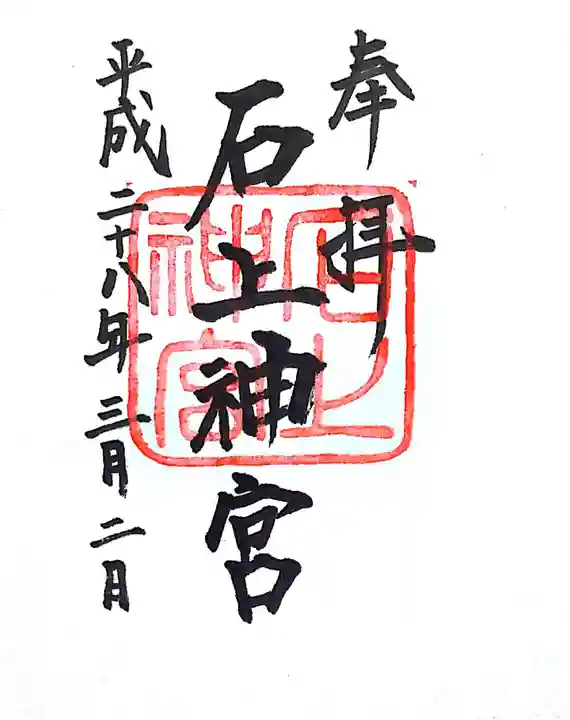 奉拝
石上神宮
平成二十八年三月二日
石上
神宮